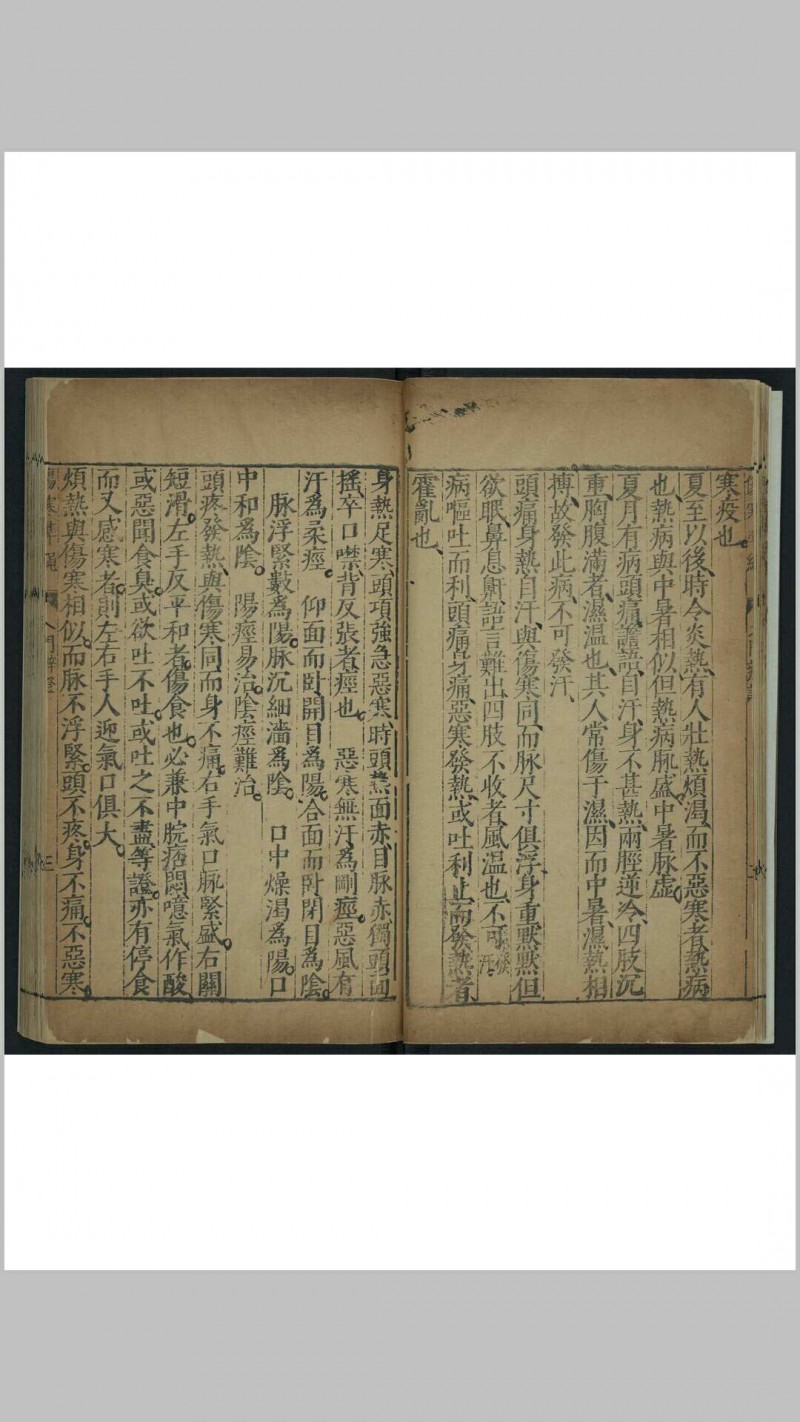 寒疫也
夏至以後時令炎熱有人壯熱煩渴而不惡寒者熱病
也熱病與中暑相似但熱病脈盛中暑脈虛
夏月有病頭痛譫語自汗身不甚熱兩脛逆冷四肢沉
重胸腹滿者濕温也其人常傷于濕因而中暑濕熱相
搏故發此病不可發汗
頭痛身熱自汗與傷寒同而脈尺寸俱浮身重默默但
欲眠鼻息鼾語言難出四肢不收者風温也不可發汗
病嘔吐而利頭痛身痛惡寒發熱或吐利止而發熱者
霍亂也
身熱足寒頭項強急惡寒時頭熱面赤目脈赤獨頭面
搖卒口噤背反張者痙也 惡寒無汗爲剛痙惡風有
汗爲柔痙 仰面而卧開目爲陽合面而卧閉目爲陰
脉浮緊數爲陽脉沉細濇爲陰 口中燥渴爲陽口
中和爲陰 陽痙易治陰痙難治
頭疼發熱與傷寒同而身不痛右手氣口脈緊盛右關
短滑左手反平和者傷食也必兼中脘痞悶噫氣作酸
或惡聞食臭或欲吐不吐或吐之不盡等證亦有停食
而又感寒者則左右手人迎氣口俱大
煩熱與傷寒相似而脈不浮緊頭不疼身不痛不惡寒